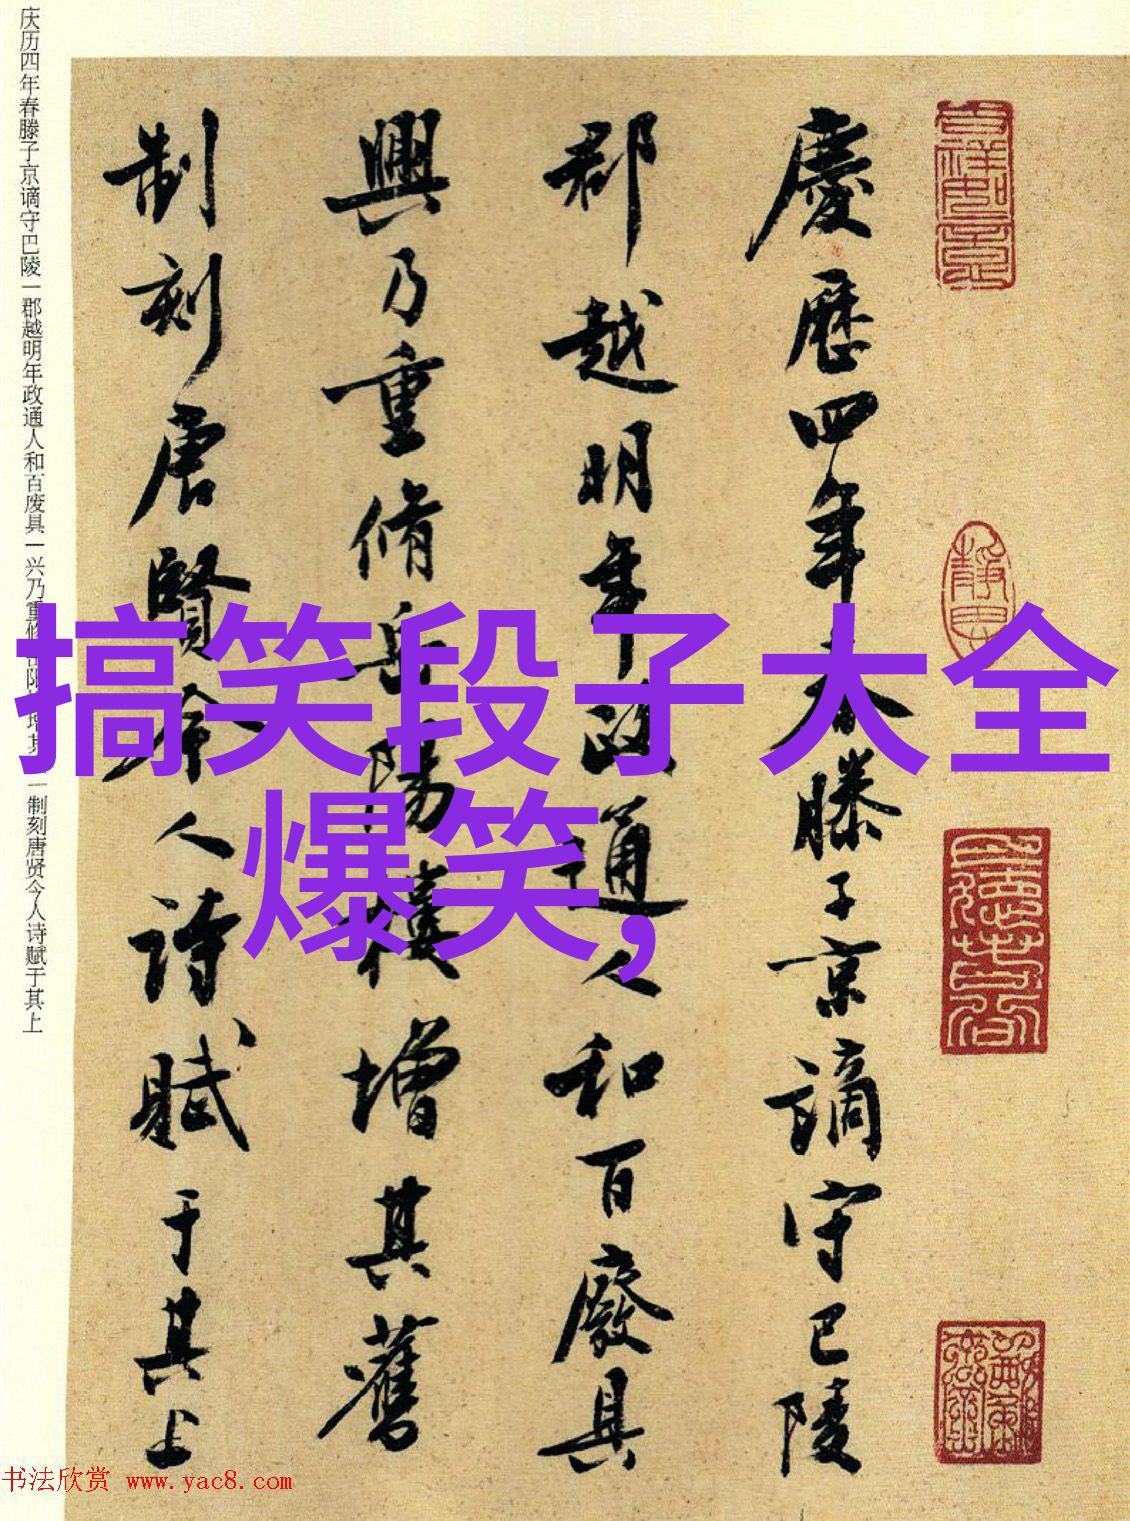 搞笑段子大全
爆笑,
慶歷四年春滕子京謫守巴陵
郡越明年政通人和百廢具
興乃重脩岳陽樓增其舊
制刻唐賢今人詩賦于其上
庆历四年春滕子京谪守巴陵一郡越明年政通人和百废具一兴乃重修岳阳楼增其旧一制刻唐贤今人诗赋于其上
书法欣赏 www.yac8.com